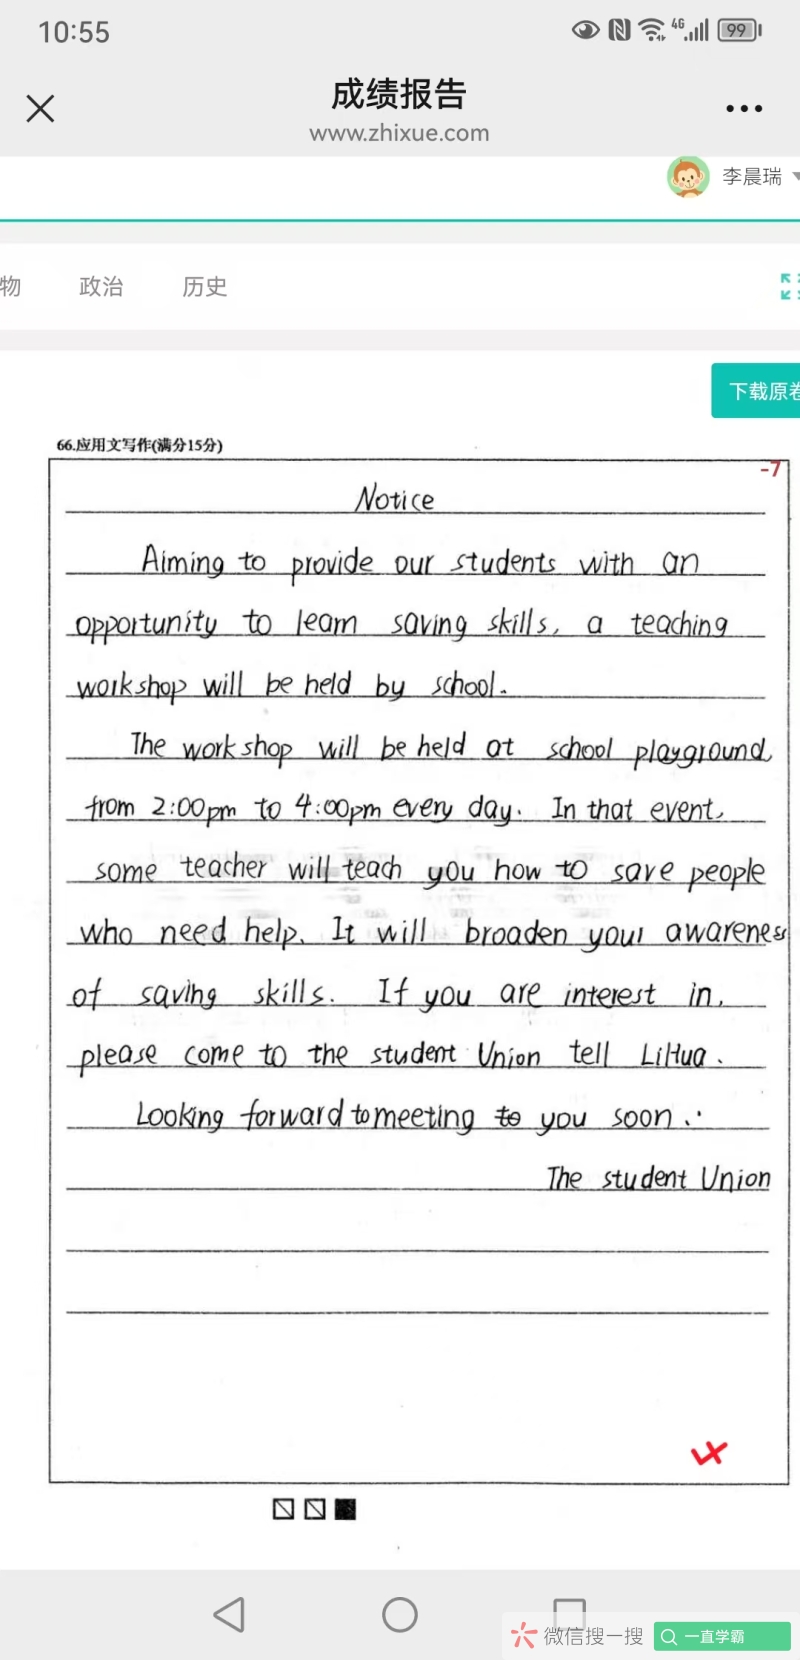 10:55
4G
99
成绩报告
www.zhixue.com
李晨瑞
物 政治 历史
下载原卷
66.应用文写作(满分15分)
-7
Notice
Aiming to provide our students with an
opportunity to learn saving skills, a teaching
workshop will be held by school.
The workshop will be held at school playground
from 2:00pm to 4:00pm every day. In that event,
some teacher will teach you how to save people
who need help. It will broaden your awareness
of saving skills. If you are interest in,
please come to the student Union tell LiHua.
Looking forward to meeting to you soon.
The student Union
微信搜一搜
一直学霸